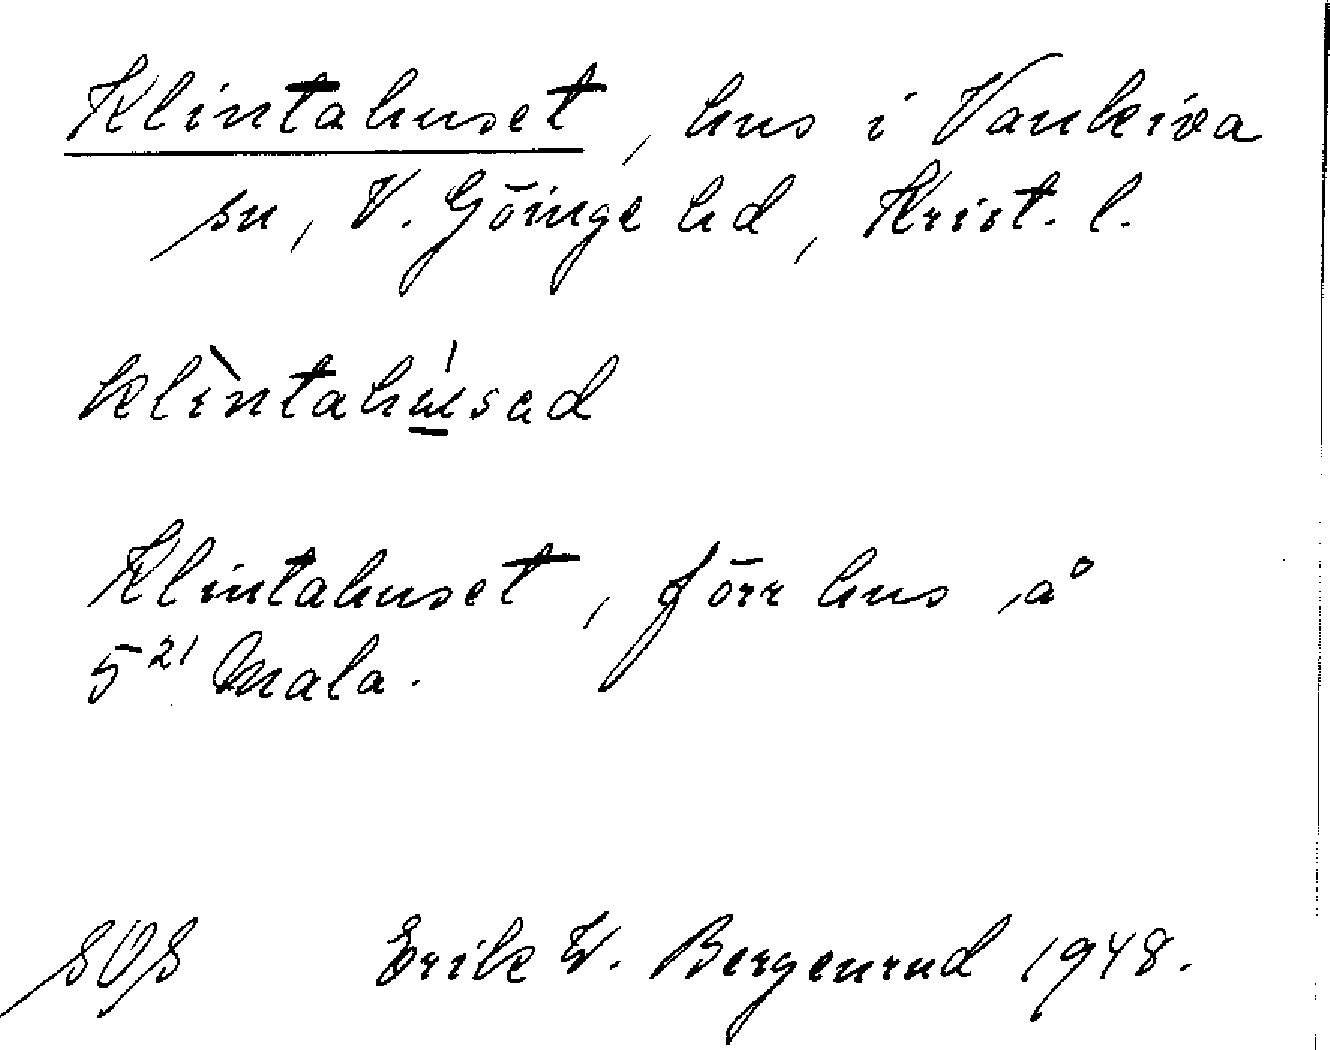 Klintahuset, hus i Vankiva
sn, V. Göinge hd, Krist. l.
klìntahúsad
Klintahuset, förr hus på
5²¹ Mala.
SOS Erik W. Bergenrud 1948.